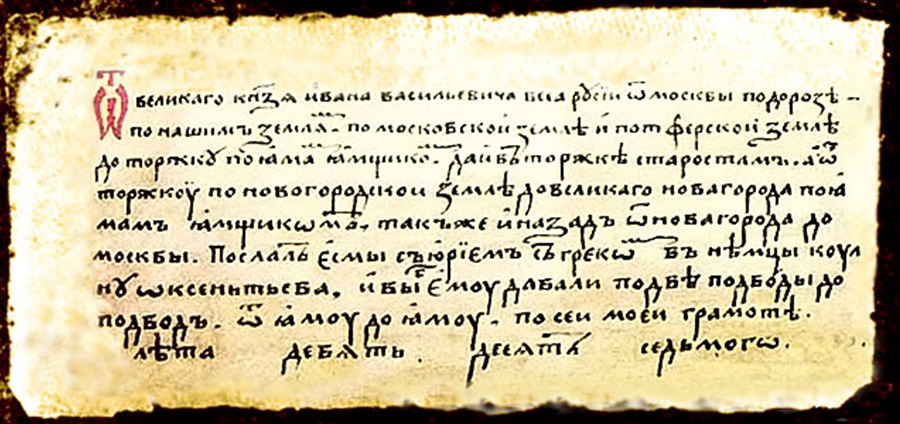 Ѿ великаго кн҃ѕя и҆вана васильевича всеа рꙋсїи ѿ москвы подорозѣ –
по нашимъ землѧⷨ. по московской землѣ и҆ по тферской землѣ
до торжкꙋ по ꙗ҆маⷨ ꙗ҆мщикоⷨ. да и въ торжкѣ старостамъ. а ѿ
торжкоу по новогородской землѣ до великаго новагорода по ꙗ҆
мамъ ꙗ҆мщикѡмъ. такъже и҆ назадъ ѿ новагорода до
москвы. Послалъ є҆смы съ юрїемъ съ грекѡⷨ въ нѣмцы коул
нꙋ ѡксентьева, и҆ вы є҆моу давали подвѣ подводы до
подводъ. ѿ ꙗ҆моу до ꙗ҆моу. по сеи моеи грамотѣ.
лѣта девять десятъ седьмогѡ.